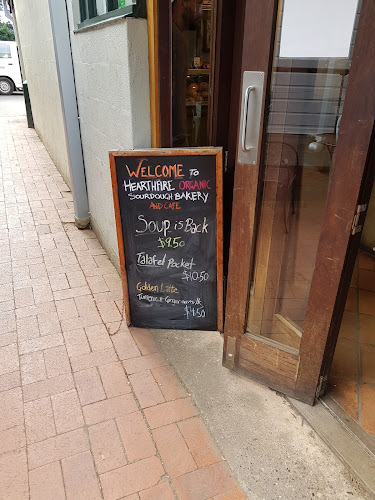 WELCOME TO
HEARTHFIRE ORGANIC
SOURDOUGH BAKERY
AND CAFE
Soup is Back
$9.50
Falafel Pocket
$10.50
Golden Latte
$4.50